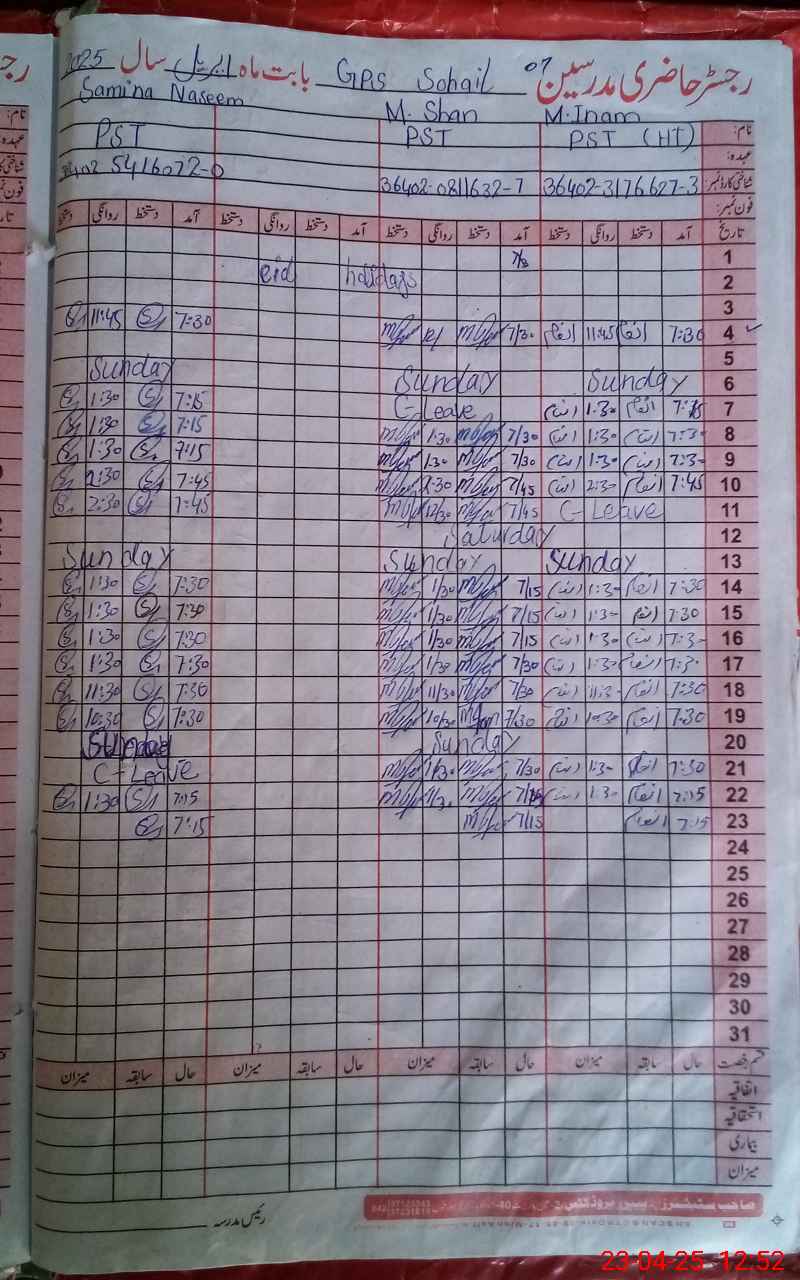 رجسٹر حاضری مدرسین 07 GPS Sohail بابت ماہ اپریل سال 2025
نام: M.Inam M. Shan Samina Naseem
عہدہ: PST (HT) PST PST
شناختی کارڈ نمبر: 36402-3176627-3 36402-0811632-7 36402 5416072-0
فون نمبر:
تاریخ آمد دستخط روانگی دستخط آمد دستخط روانگی دستخط آمد دستخط روانگی دستخط آمد دستخط روانگی دستخط
1
2 eid holidays
3
4 7:30 انعام 11:45 انعام 7/30 7:30 11:45
5
6 Sunday Sunday Sunday
7 7:15 انعام 1:30 انعام C-Leave 7:15 1:30
8 7:30 انعام 1:30 انعام 7/30 1:30 7:15 1:30
9 7:30 انعام 1:30 انعام 7/30 1:30 7:15 1:30
10 7:45 انعام 2:30 انعام 7/45 2:30 7:45 2:30
11 C-Leave 7/45 12/30 7:45 2:30
12 Saturday
13 Sunday Sunday Sunday
14 7:30 انعام 1:30 انعام 7/15 1/30 7:30 1:30
15 7:30 انعام 1:30 انعام 7/15 1/30 7:30 1:30
16 7:30 انعام 1:30 انعام 7/15 1/30 7:30 1:30
17 7:30 انعام 1:30 انعام 7/30 1/30 7:30 1:30
18 7:30 انعام 11:30 انعام 7/30 11/30 7:30 11:30
19 7:30 انعام 10:30 انعام 7/30 10/30 7:30 10:30
20 Sunday Sunday
21 7:30 انعام 1:30 انعام 7/30 1/30 C-Leave
22 7:15 انعام 1:30 انعام 7/15 1/30 7:15 1:30
23 7:15 انعام 7/15 7:15
24
25
26
27
28
29
30
31
قسم رخصت حال سابقہ میزان حال سابقہ میزان حال سابقہ میزان حال سابقہ میزان
اتفاقیہ
استحقاقیہ
بیماری
میزان
رئیس مدرسہ
23-04-25 12:52